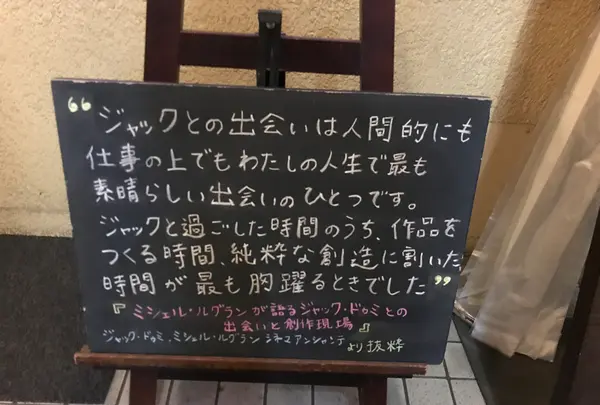 “ジャックとの出会いは人間的にも
仕事の上でもわたしの人生で最も
素晴らしい出会いのひとつです。
ジャックと過ごした時間のうち、作品を
つくる時間、純粋な創造に割いた
時間が最も胸躍るときでした”
『ミシェル・ルグランが語るジャック・ドゥミとの
出会いと創作現場』
ジャック・ドゥミ、ミシェル・ルグラン シネマ・アンシャンテ より抜粋